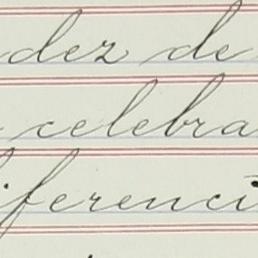 dez de
celebra
iferenci